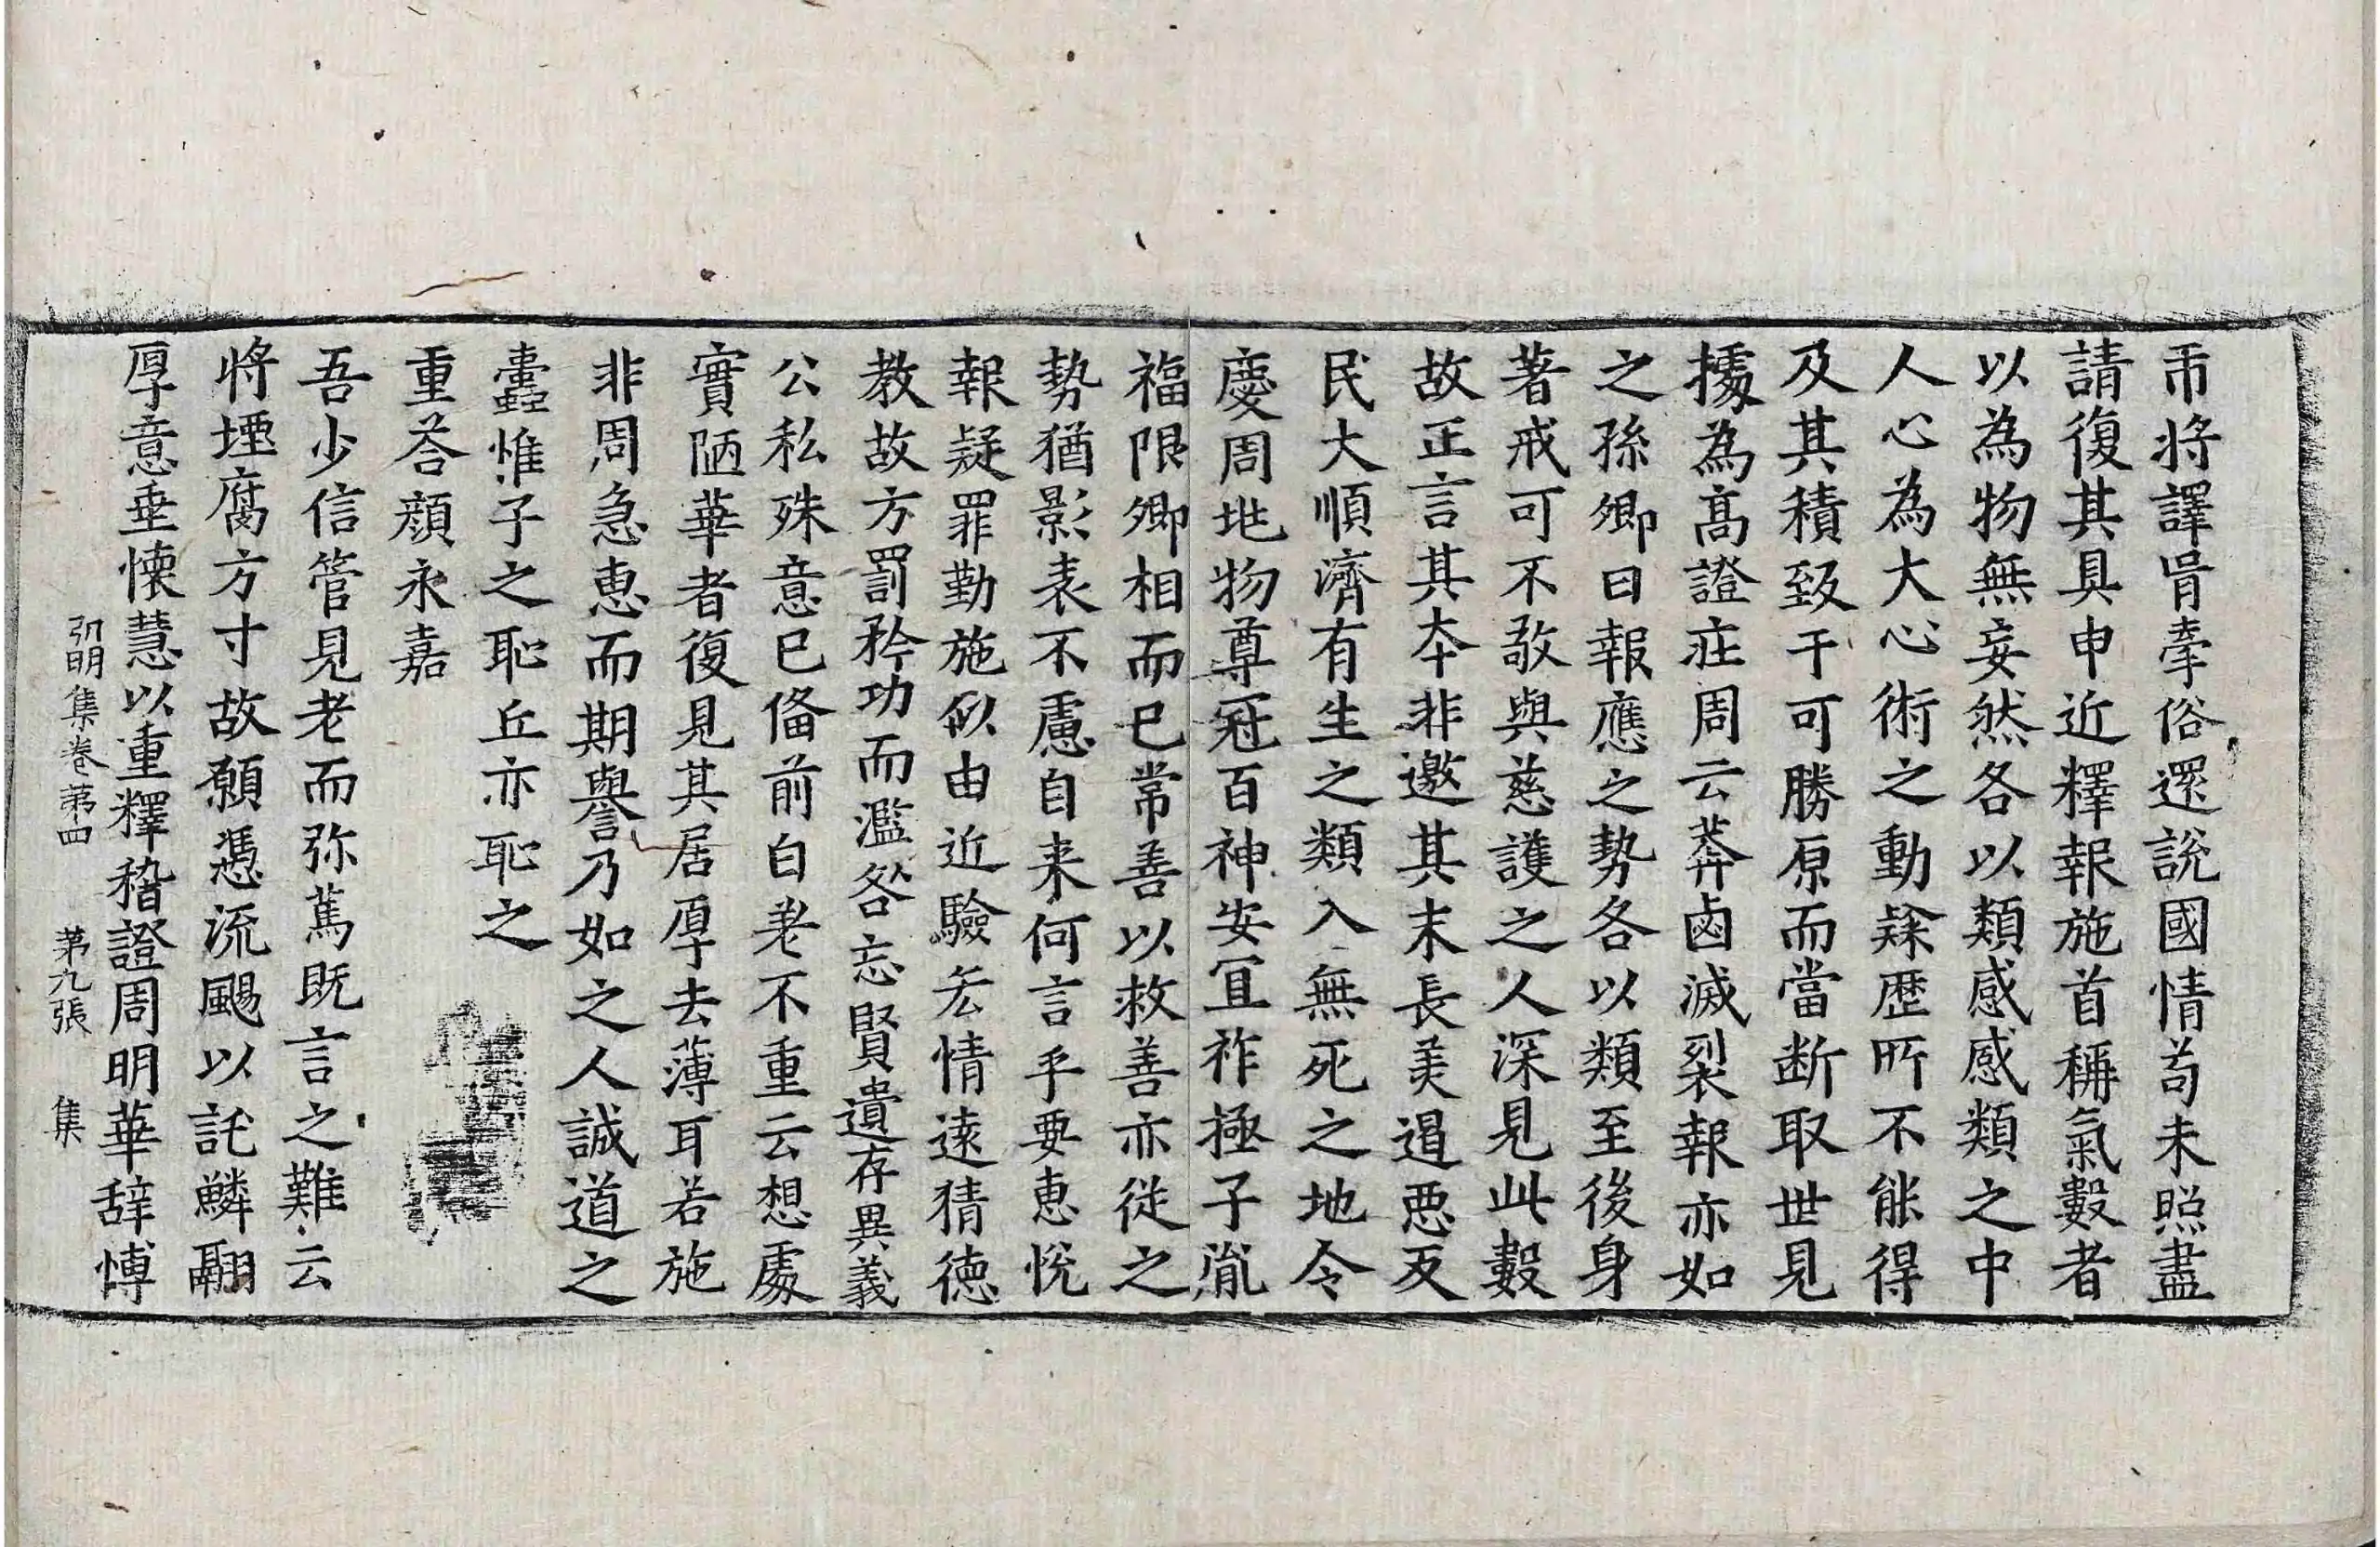 帀將譯胥牽俗還說國情苟未照盡
請復其具申近釋報施首稱氣數者
以為物無妄然各以類感感類之中
人心為大心術之動㝷歷所不能得
及其積致于可勝原而當断取世見
據為髙證莊周云莽鹵滅裂報亦如
之孫卿曰報應之勢各以類至後身
著戒可不敬與慈護之人深見此數
故正言其本非邀其末長美遏惡反
民大順濟有生之類入無死之地令
慶周㘴物尊冠百神安宜祚極子胤
福限卿相而已常善以救善亦從之
勢猶影表不慮自来何言乎要惠悅
報疑罪勤施似由近驗吝情遠猜德
教故方罰矜功而濫咎忘賢遺存異義
公私殊意已俻前白老不重云想處
實陋華者復見其居厚去薄耳若施
非周急惠而期譽乃如之人誠道之
蠧惟子之恥丘亦恥之
重荅顔永嘉
吾少信管見老而弥篤既言之難云
將堙腐方寸故願憑流颺以託鱗翮
厚意垂懷慧以重釋稽證周明華辞博
弘明集卷苐四 苐九張 集